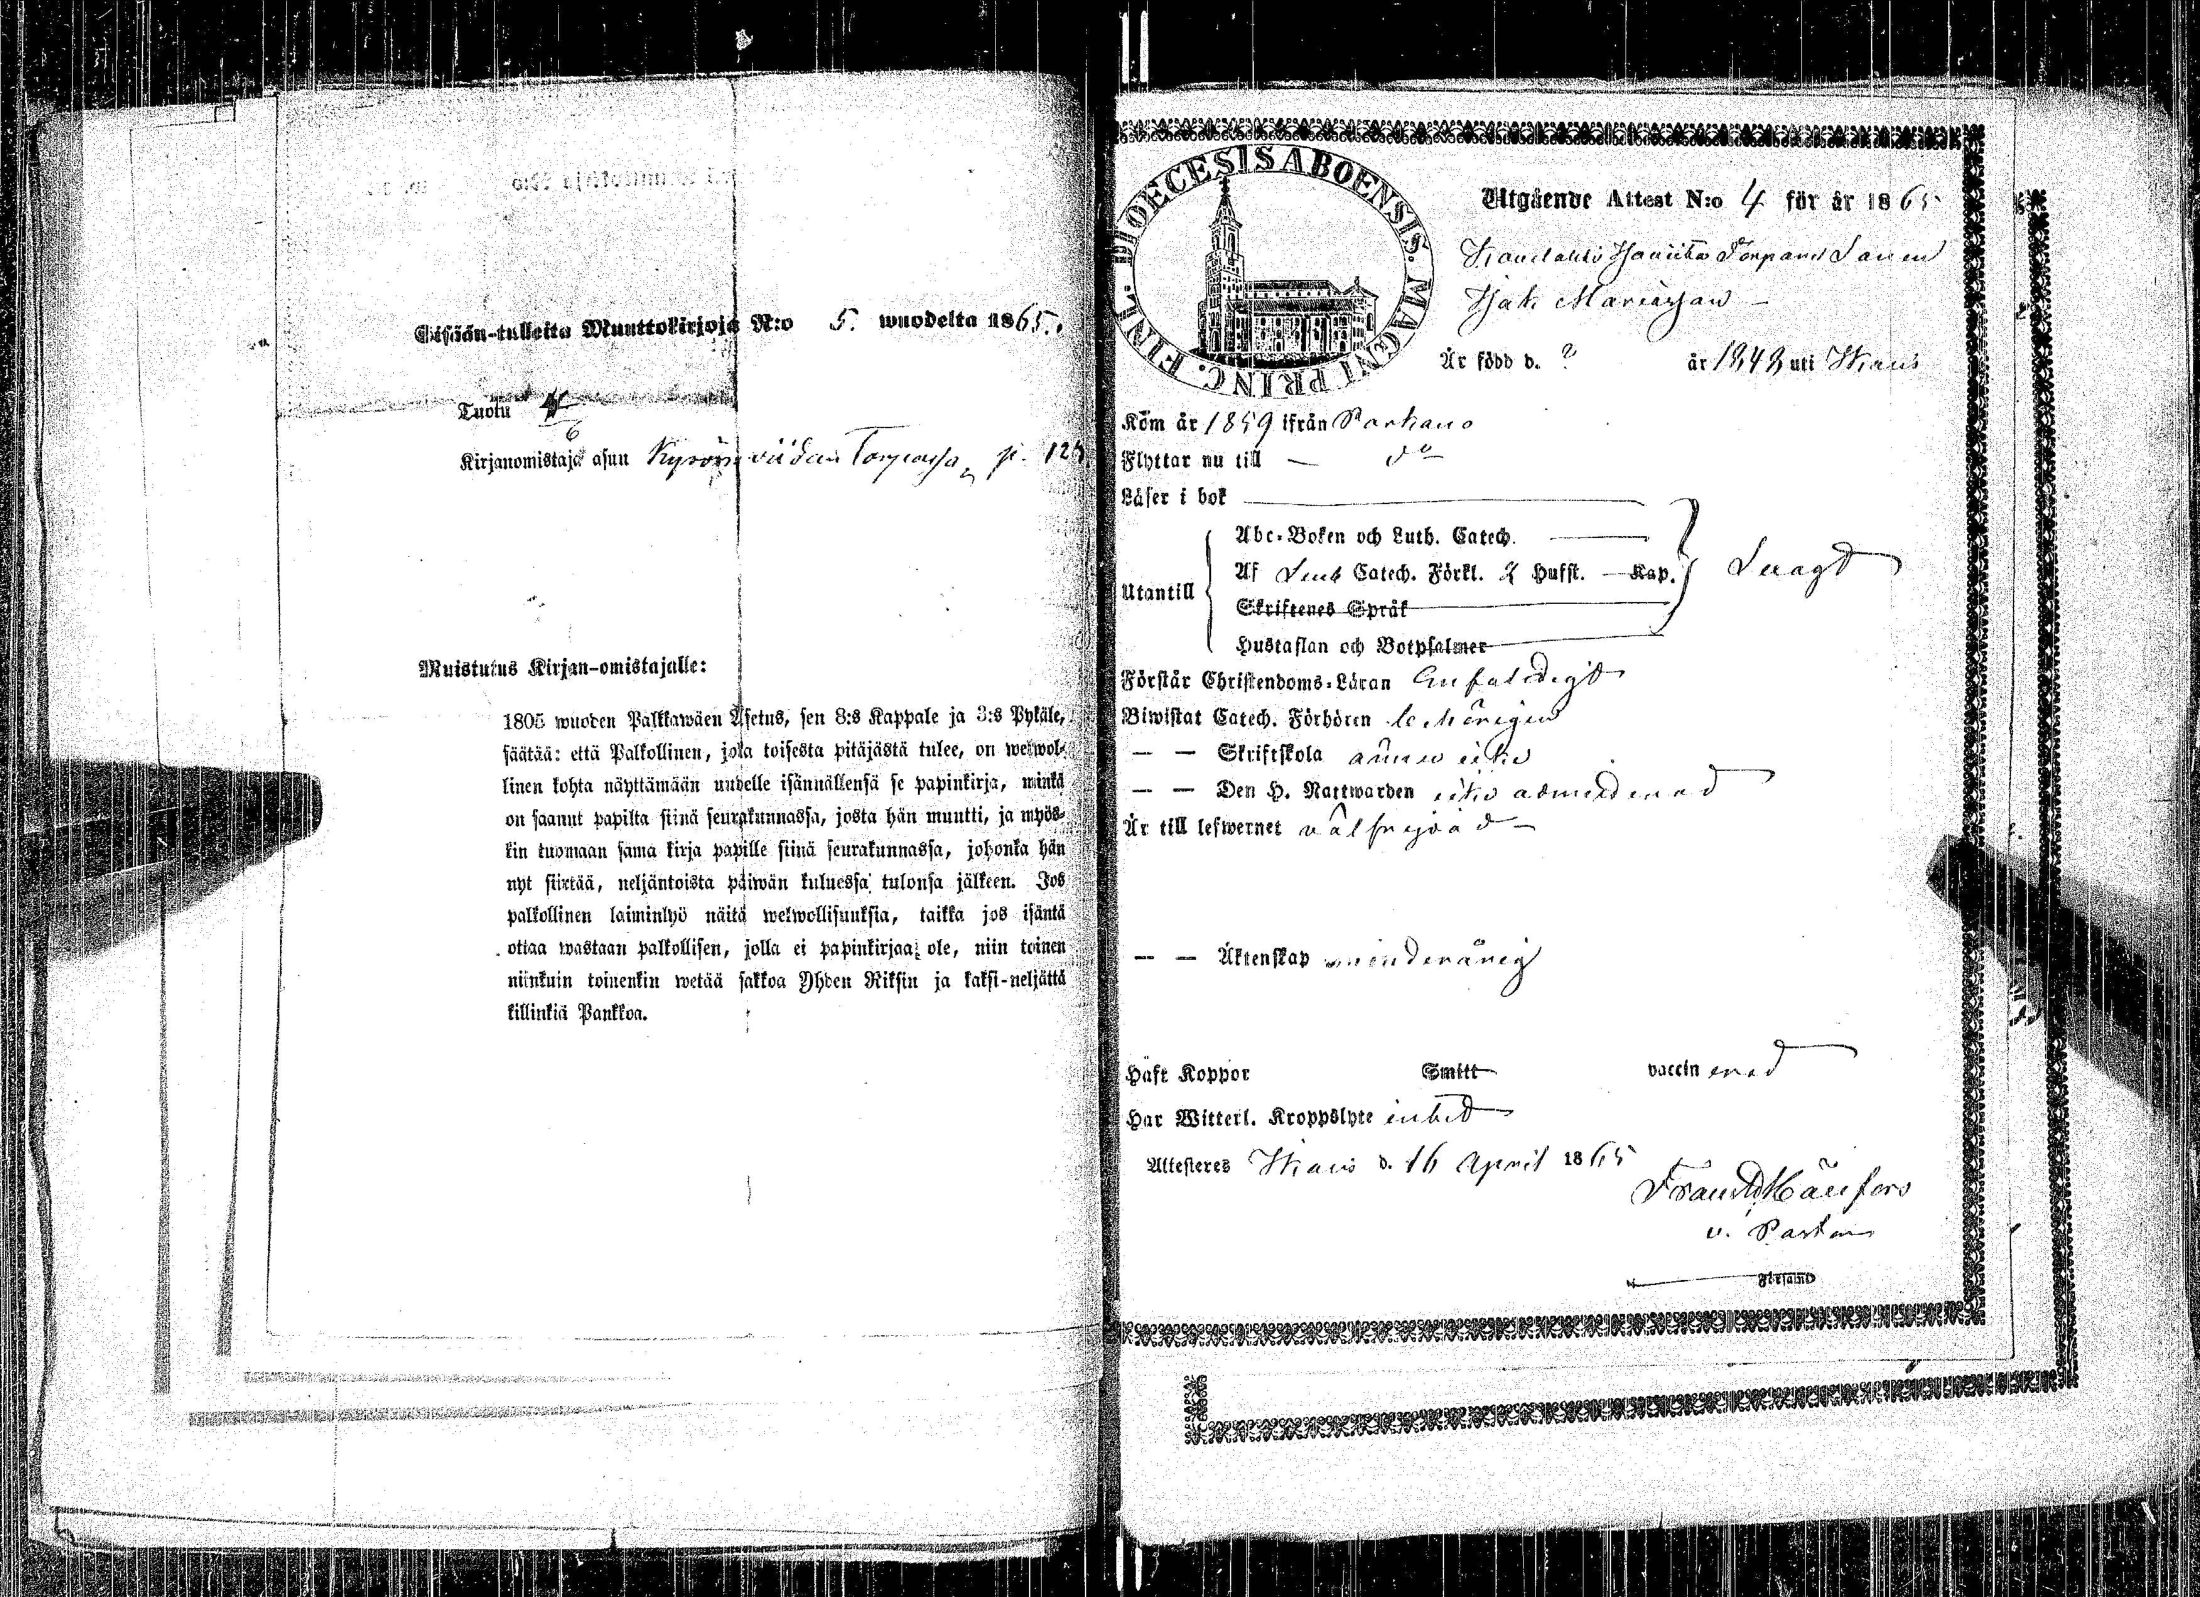 Sisään-tulleita Muuttokirjoja N:o 5. wuodelta 1865.
Tuotu
6
Kirjanomistaja asuu Kyrön Torpassa, p. 125
Muistutus Kirjan-omistajalle:
1805 wuoden Palkkawäen Asetus, sen 8:s Kappale ja 3:s Pykäle,
säätää: että Palkollinen, joka toisesta pitäjästä tulee, on welwol-
linen kohta näyttämään uudelle isännällensä se papinkirja, minkä
on saanut papilta siinä seurakunnassa, josta hän muutti, ja myös-
kin tuomaan sama kirja papille siinä seurakunnassa, johonka hän
nyt siirtää, neljäntoista päiwän kuluessa tulonsa jälkeen. Jos
palkollinen laiminlyö näitä welwollisuuksia, taikka jos isäntä
ottaa wastaan palkollisen, jolla ei papinkirjaa ole, niin toinen
niinkuin toinenkin wetää sakkoa Yhden Riksin ja kaksi-neljättä
killinkiä Pankkoa.
FINL. DIOECESIS ABOENSIS. MAGNI PRINC.
Utgående Attest N:o 4 för år 1865
Torpare Sonen
Isak Mariasson
Är född d. ? år 1848 uti Ikalis
Kom år 1859 ifrån Parkano
Flyttar nu till — do
Läser i bok
Utantill
Abc-Boken och Luth. Catech.
Af Catech. Förkl. 2 Hufst. Kap.
Svagt
Skriftenes Språk
Hustaflan och Botpsalmer
Förstår Christendoms-Läran enfaldigt
Biwistat Catech. Förhören behörigen
— — Skriftskola ännu icke
— — Den H. Nattwarden icke admitterad
Är till lefwernet välfrejdad
— — Äktenskap minderårig
Haft Koppor Smitt vaccinerad
Har Witterl. Kroppslyte intet
Attesteras Ikalis d. 16 April 1865
v. Pastor